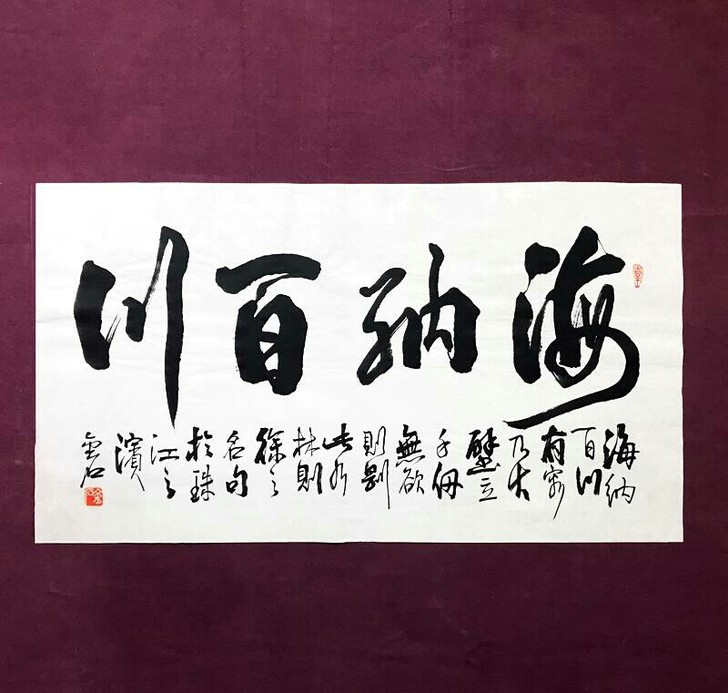 海納百川
海納
百川
有容
乃大
壁立
千仞
無欲
則剛
此為
林則
徐之
名句
於珠
江之
濱
雲石